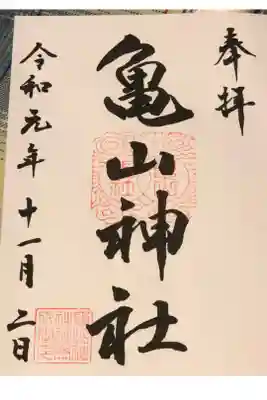 奉拝
亀山神社
令和元年十一月二日